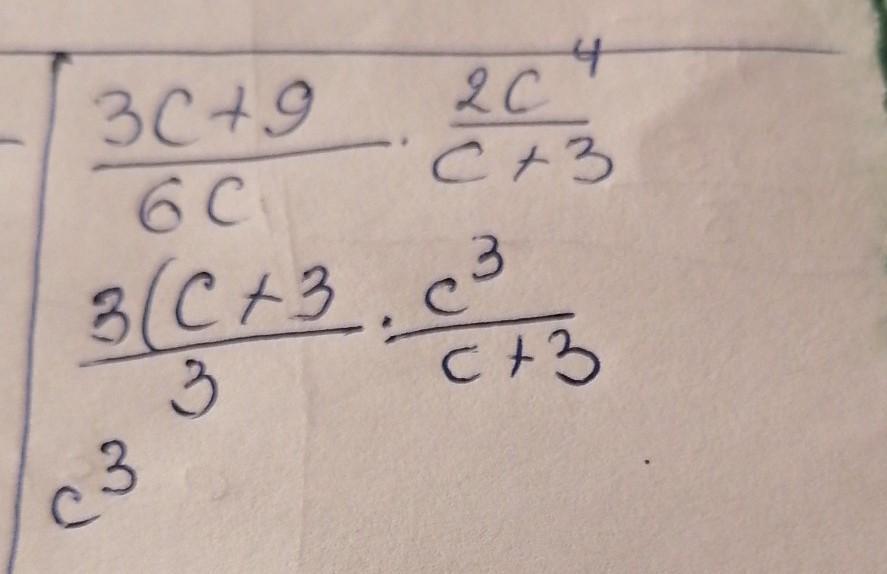 3C+9/6C · 2C⁴/C+3
3(C+3/3 · c³/c+3
c³